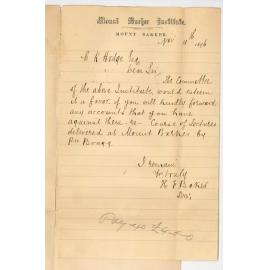 Mount Barker Institute.
MOUNT BARKER,
Nov 11th 1896
C R Hodge Esq
Dear Sir,
The Committee
of the above Institute, would esteem
it a favor if you will kindly forward
any accounts that you have
against them re Course of Lectures
delivered at Mount Barker by
Dr Bragg.
I remain
Yrs truly
H. F. Baker
Sec.